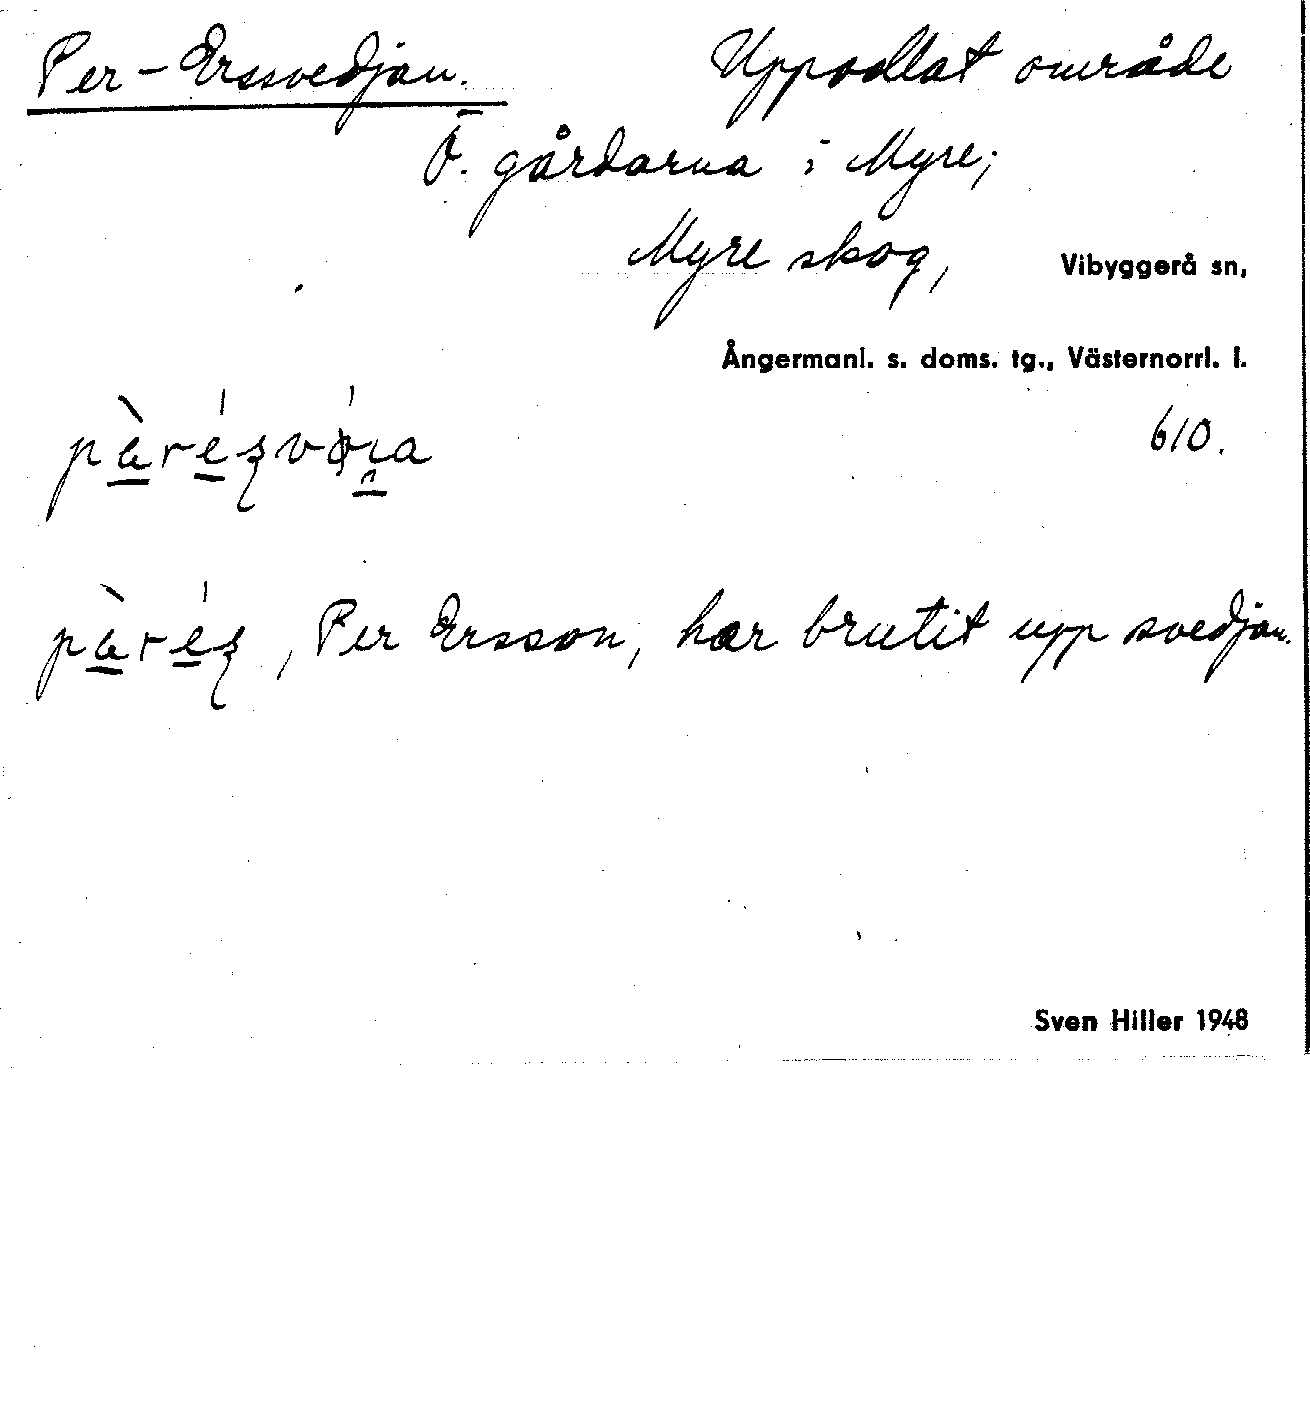 Per-Erssvedjan. Uppodlat område
Ö. gårdarna i Myre;
Myre skog, Vibyggerå sn,
Ångermanl. s. doms. tg., Västernorrl. l.
610.
, Per Ersson, har brutit upp svedjan.
Sven Hiller 1948